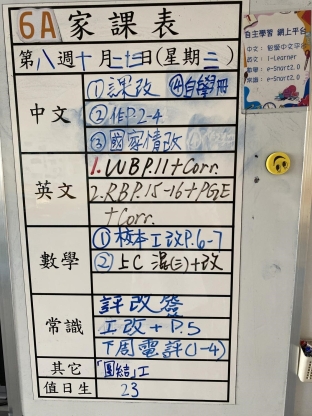 6A 家課表
第八週十月二十二日(星期三)
中文
①課改 ④自學冊
②作P.2-4
③國家情改
英文
1. WB P.11 + Corr.
2. RB P.15-16 + PGE
+ Corr.
數學
① 校本工改P.6-7
② 上C 混(三)+改
常識
評改簽
工改 + P.5
下周電評(1-4)
其它
「團結」工
值日生
23
自主學習 網上平台
英文: i-Learner
e-Smart2.0
常識: e-Smart2.0